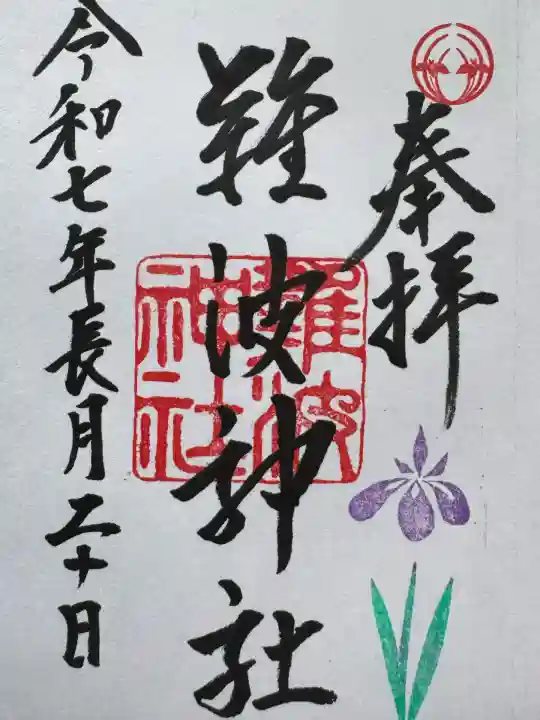 奉拝
難波神社
難波
神社
令和七年長月二十日